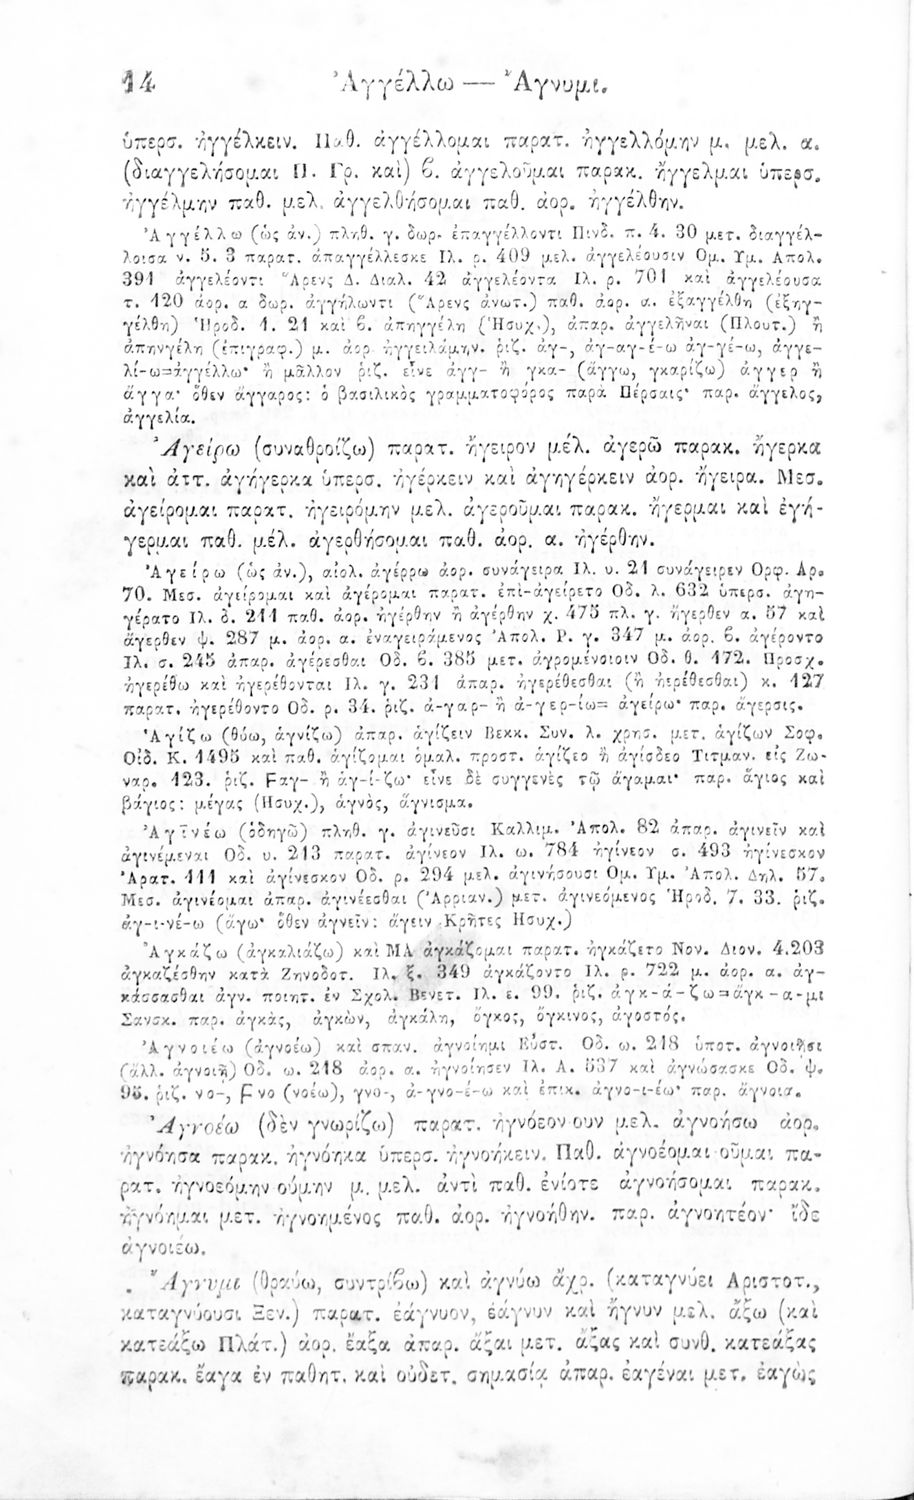 14 Ἀγγέλλω — Ἄγνυμι.
ὑπερσ. ἠγγέλκειν. Παθ. ἀγγέλλομαι παρατ. ἠγγελλόμην μ. μελ. α.
(διαγγελήσομαι Π. Γρ. καὶ) β. ἀγγελοῦμαι παρακ. ἤγγελμαι ὑπερσ.
ἠγγέλμην παθ. μελ. ἀγγελθήσομαι παθ. ἀορ. ἠγγέλθην.
Ἀγγέλλω (ὡς ἀν.) πληθ. γ. δωρ. ἐπαγγέλλοντι Πινδ. π. 4. 30 μετ. διαγγέλ-
λοισα ν. 5. 3 παρατ. ἀπαγγέλλεσκε Ιλ. ρ. 409 μελ. ἀγγελέουσιν Ομ. Υμ. Απολ.
391 ἀγγελέοντι Ἄρενς Δ. Διαλ. 42 ἀγγελέοντα Ιλ. ρ. 701 καὶ ἀγγελέουσα
τ. 120 ἀορ. α δωρ. ἀγγήλωντι (Ἄρενς ἀνωτ.) παθ. ἀορ. α. ἐξαγγέλθη (ἐξηγ-
γέλθη) Ἡροδ. 1. 21 καὶ β. ἀπηγγέλη (Ἡσυχ.), ἀπαρ. ἀγγελῆναι (Πλουτ.) ἢ
ἀπηνγέλη (ἐπιγραφ.) μ. ἀορ ἠγγειλάμην. ῥιζ. ἀγ-, ἀγ-αγ-έ-ω ἀγ-γέ-ω, ἀγγε-
λί-ω=ἀγγέλλω· ἢ μᾶλλον ῥιζ. εἶνε ἀγγ- ἢ γκα- (ἄγγω, γκαρίζω) ἀγγερ ἢ
ἀγγα· ὅθεν ἄγγαρος: ὁ βασιλικὸς γραμματοφόρος παρὰ Πέρσαις· παρ. ἄγγελος,
ἀγγελία.
Ἀγείρω (συναθροίζω) παρατ. ἤγειρον μέλ. ἀγερῶ παρακ. ἤγερκα
καὶ ἀττ. ἀγήγερκα ὑπερσ. ἠγέρκειν καὶ ἀγηγέρκειν ἀορ. ἤγειρα. Μεσ.
ἀγείρομαι παρατ. ἠγειρόμην μελ. ἀγεροῦμαι παρακ. ἤγερμαι καὶ ἐγή-
γερμαι παθ. μέλ. ἀγερθήσομαι παθ. ἀορ. α. ἠγέρθην.
Ἀγείρω (ὡς ἀν.), αἰολ. ἀγέρρω ἀορ. συνάγειρα Ιλ. υ. 21 συνάγειρεν Ορφ. Αρ.
70. Μεσ. ἀγείρομαι καὶ ἀγέρομαι παρατ. ἐπι-ἀγείρετο Οδ. λ. 632 ὑπερσ. ἀγη-
γέρατο Ιλ. δ. 211 παθ. ἀορ. ἠγέρθην ἢ ἀγέρθην χ. 475 πλ. γ. ἤγερθεν α. 57 καὶ
ἄγερθεν ψ. 287 μ. ἀορ. α. ἐναγειράμενος Ἀπολ. Ρ. γ. 347 μ. ἀορ. β. ἀγέροντο
Ιλ. σ. 245 ἀπαρ. ἀγέρεσθαι Οδ. β. 385 μετ. ἀγρομένοιοιν Οδ. θ. 172. Προσχ.
ἠγερέθω καὶ ἠγερέθονται Ιλ. γ. 231 ἀπαρ. ἠγερέθεσθαι (ἢ ἠερέθεσθαι) κ. 127
παρατ. ἠγερέθοντο Οδ. ρ. 34. ῥιζ. ἀ-γαρ- ἢ ἀ-γερ-ίω= ἀγείρω· παρ. ἄγερσις.
Ἁγίζω (θύω, ἁγνίζω) ἀπαρ. ἁγίζειν Βεκκ. Συν. λ. χρησ. μετ. ἁγίζων Σοφ.
Οἰδ. Κ. 1495 καὶ παθ. ἁγίζομαι ὁμαλ. προστ. ἁγίζεο ἢ ἁγίσδεο Τιτμαν. εἰς Ζω-
ναρ. 123. ῥιζ. Ϝαγ- ἢ ἁγ-ί-ζω· εἶνε δὲ συγγενὲς τῷ ἄγαμαι· παρ. ἅγιος καὶ
βάγιος: μέγας (Ησυχ.), ἁγνὸς, ἅγνισμα.
Ἀγῑνέω (ὁδηγῶ) πληθ. γ. ἀγινεῦσι Καλλιμ. Ἀπολ. 82 ἀπαρ. ἀγινεῖν καὶ
ἀγινέμεναι Οδ. υ. 213 παρατ. ἀγίνεον Ιλ. ω. 784 ἠγίνεον σ. 493 ἠγίνεσκον
Ἀρατ. 111 καὶ ἀγίνεσκον Οδ. ρ. 294 μελ. ἀγινήσουσι Ομ. Υμ. Ἀπολ. Δηλ. 57.
Μεσ. ἀγινέομαι ἀπαρ. ἀγινέεσθαι (Ἀρριαν.) μετ. ἀγινεόμενος Ἡροδ. 7. 33. ῥιζ.
ἀγ-ι-νέ-ω (ἄγω· ὅθεν ἀγνεῖν: ἄγειν Κρῆτες Ησυχ.)
Ἀγκάζω (ἀγκαλιάζω) καὶ ΜΑ ἀγκάζομαι παρατ. ἠγκάζετο Νον. Διον. 4.203
ἀγκαζέσθην κατὰ Ζηνοδοτ. Ιλ. ξ. 349 ἀγκάζοντο Ιλ. ρ. 722 μ. ἀορ. α. ἀγ-
κάσσασθαι ἀγν. ποιητ. ἐν Σχολ. Βενετ. Ιλ. ε. 99. ῥιζ. ἀγκ-ά-ζω=ἄγκ-α-μι
Σανσκ. παρ. ἀγκὰς, ἀγκὼν, ἀγκάλη, ὄγκος, ὄγκινος, ἀγοστός.
Ἀγνοιέω (ἀγνοέω) καὶ σπαν. ἀγνοίημι Εὐστ. Οδ. ω. 218 ὑποτ. ἀγνοιῆσι
(ἄλλ. ἀγνοιῇ) Οδ. ω. 218 ἀορ. α. ἠγνοίησεν Ιλ. Α. 537 καὶ ἀγνώσασκε Οδ. ψ.
95. ῥιζ. νο-, Ϝνο (νοέω), γνο-, ἀ-γνο-έ-ω καὶ ἐπικ. ἀγνο-ι-έω· παρ. ἄγνοια.
Ἀγνοέω (δὲν γνωρίζω) παρατ. ἠγνόεον-ουν μελ. ἀγνοήσω ἀορ.
ἠγνόησα παρακ. ἠγνόηκα ὑπερσ. ἠγνοήκειν. Παθ. ἀγνοέομαι-οῦμαι πα-
ρατ. ἠγνοεόμην-ούμην μ. μελ. ἀντὶ παθ. ἐνίοτε ἀγνοήσομαι παρακ.
ἠγνόημαι μετ. ἠγνοημένος παθ. ἀορ. ἠγνοήθην. παρ. ἀγνοητέον· ἴδε
ἀγνοιέω.
Ἄγνυμι (θραύω, συντρίβω) καὶ ἀγνύω ἄχρ. (καταγνύει Αριστοτ.,
καταγνύουσι Ξεν.) παρατ. ἐάγνυον, ἐάγνυν καὶ ἤγνυν μελ. ἄξω (καὶ
κατεάξω Πλάτ.) ἀορ. ἔαξα ἀπαρ. ἄξαι μετ. ἄξας καὶ συνθ. κατεάξας
παρακ. ἔαγα ἐν παθητ. καὶ οὐδετ. σημασίᾳ ἀπαρ. ἐαγέναι μετ. ἐαγὼς